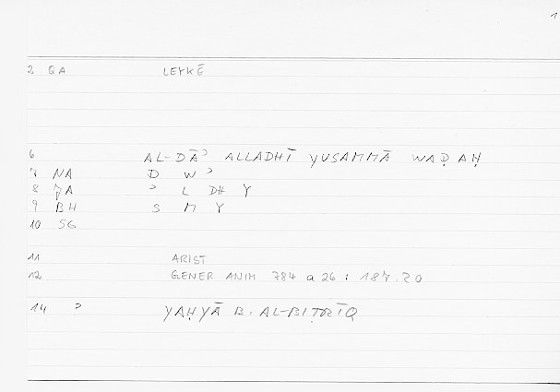 1
2 GA LEYKĒ
6 AL-DĀʾ ALLADHĪ YUSAMMĀ WAḌAḤ
7 NA D W ʾ
8 JA ʾ L DH Y
9 BH S M Y
10 SG
11 ARIST
12 GENER ANIM 784 a 26 : 187.20
14 ? YAḤYĀ B. AL-BIṬRĪQ